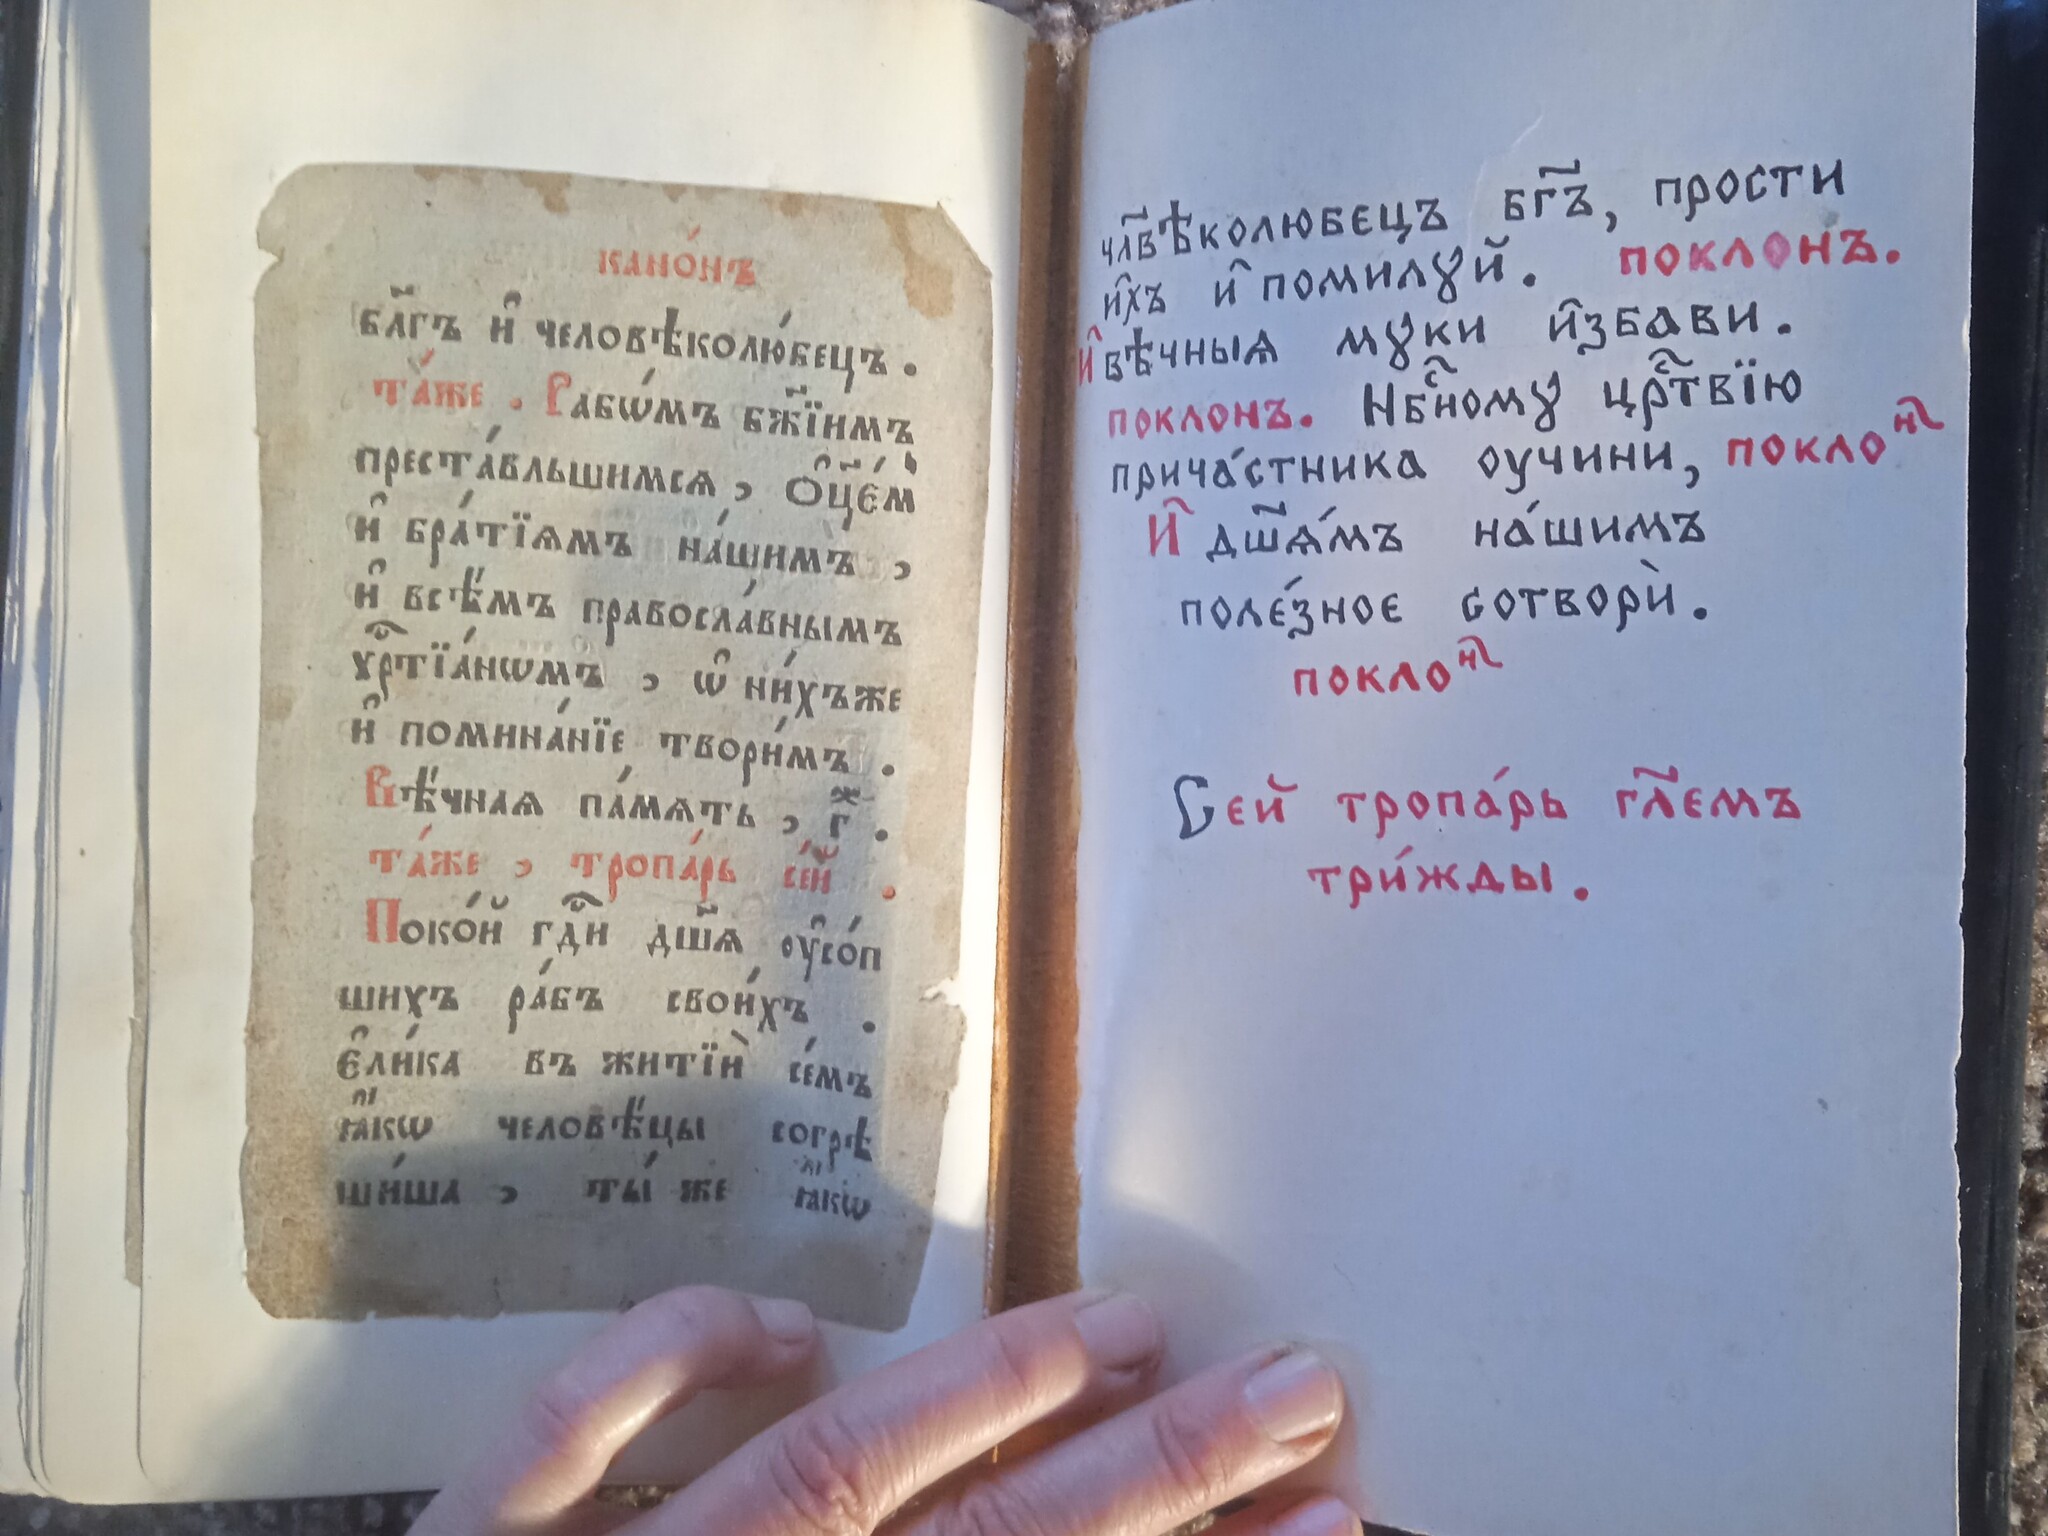 кано́нъ
бл҃гъ и҆ человѣколю́бецъ .
та́же . Рабѡ́мъ бж҃їимъ
преста́вльшимсѧ , О҆ц҃е́м
и҆ бра́тїѧмъ на́шимъ ,
и҆ всѣ́мъ правосла́внымъ
хрⷭ҇тїа́нѡмъ , ѡ҆ ни́хъже
и҆ помина́нїе твори́мъ .
Вѣ́чнаѧ па́мѧть , г҃ⷤ .
та́же , тропа́рь се́й .
Поко́й гдⷭ҇и дш҃ѧ оу҆со́п
шихъ ра́бъ свои́хъ .
є҆ли́ка въ житїѝ се́мъ
ꙗ҆́кѡ человѣ́цы согрѣ
ши́ша , ты́ же ꙗ҆́кѡ
чл҃вѣколюбецъ бг҃ъ, прости
и҆̀хъ и҆ помилꙋй. поклонъ.
И҆ вѣчныѧ мꙋки и҆збави.
поклонъ. Нбⷭ҇номꙋ црⷭ҇твїю
прича́стника оучини, поклоⷩ
И҆ дш҃а́мъ на́шимъ
поле́зное сотворѝ.
поклоⷩ
Сей тропа́рь гл҃емъ
три́жды.